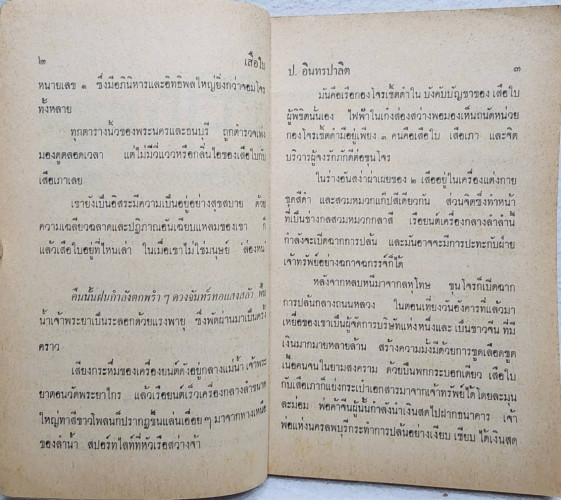 ๒ เสือใบ
หมายเลข ๑ ซึ่งมีอภินิหารและอิทธิพลใหญ่ยิ่งกว่าจอมโจร
ทั้งหลาย
ทุกตารางนิ้วของพระนครและธนบุรี ถูกตำรวจเพ่ง
มองดูตลอดเวลา แต่ไม่มีวี่แววหรือกลิ่นไอของเสือใบกับ
เสือเภาเลย
เขายังเป็นอิสระมีความเป็นอยู่อย่างสุขสบาย ด้วย
ความเฉลียวฉลาดและปฏิภาณอันเฉียบแหลมของเขา ก็
แล้วเสือใบอยู่ที่ไหนเล่า ในเมื่อเขาไม่ใช่มนุษย์ ล่องหน
คืนนั้นฝนกำลังตกพรำ ๆ ดวงจันทร์ทอแสงสลัว พื้น
น้ำเจ้าพระยาเป็นระลอกด้วยแรงพายุ ซึ่งพัดผ่านมาเป็นครั้ง
คราว
เสียงกระหึ่มของเครื่องยนต์ดังอยู่กลางแม่น้ำเจ้าพระ
ยาตอนวัดพระยาไกร แล้วเรือยนต์เร็วเครื่องกลางลำขนาด
ใหญ่ทาสีขาวโพลนก็ปรากฏขึ้นแล่นเอื่อย ๆ มาจากทางเหนือ
ของลำน้ำ สปอร์ทไลท์ที่หัวเรือสว่างจ้า
ป. อินทรปาลิต ๓
มันคือเรือกองโจรเชิ้ตดำใน บังคับบัญชาของ เสือใบ
ผู้พิชิตนั่นเอง ไฟฟ้าในเก๋งส่องสว่างพอมองเห็นถนัดหน่วย
กองโจรเชิ้ตดำมีอยู่เพียง ๓ คนคือเสือใบ เสือเภา และจิต
บริวารผู้จงรักภักดีต่อขุนโจร
ในร่างอันสง่าผ่าเผยของ ๒ เสืออยู่ในเครื่องแต่งกาย
ชุดสีดำ และสวมหมวกแก๊ปสีเดียวกัน ส่วนจิตซึ่งทำหน้า
ที่เป็นช่างกลสวมหมวกกลาสี เรือยนต์เครื่องกลางลำลำนี้
กำลังจะเบิดฉากการปล้น และมันอาจจะมีการปะทะกับฝ่าย
เจ้าทรัพย์อย่างฉกาจฉกรรจ์ก็ได้
หลังจากหลบหนีมาจากลหุโทษ ขุนโจรก็เบิดฉาก
การปล้นกลางถนนหลวง ในตอนเที่ยงวันอังคารที่แล้วมา
เหยื่อของเขาเป็นผู้จัดการบริษัทแห่งหนึ่งและ เป็นชาวจีน ที่มี
เงินมากมายหลายล้าน สร้างความมั่งมีด้วยการขูดเลือดขูด
เนื้อคนจนในยามสงคราม ด้วยปืนพกกระบอกเดียว เสือใบ
กับเสือเภาก็แย่งกระเป๋าเอกสารมาจากเจ้าทรัพย์ได้โดยละมุน
ละม่อม พ่อค้าจีนผู้นั้นกำลังนำเงินสดไปฝากธนาคาร เจ้า
พ่อแห่งนครลพบุรีกระทำการปล้นอย่างเงียบ เชียบ ได้เงินสด